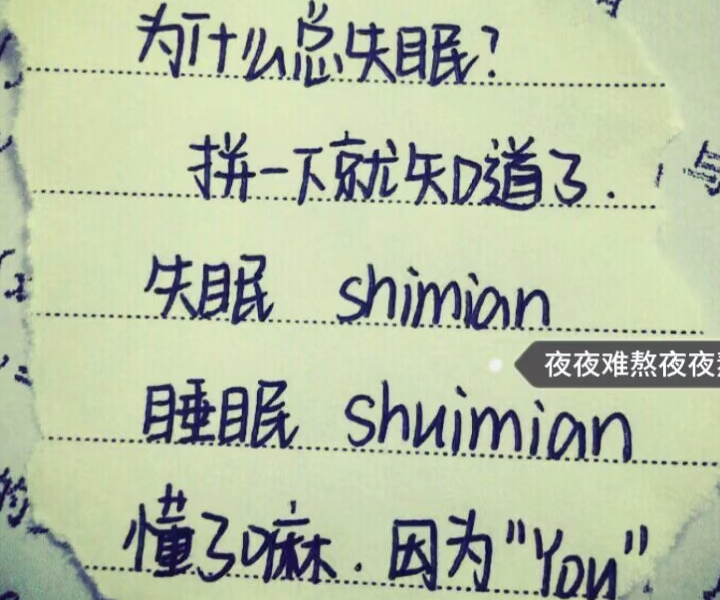 为什么总失眠?
拼一下就知道了.
失眠 shimian
夜夜难熬夜夜
睡眠 shuimian
懂了嘛.因为"You"